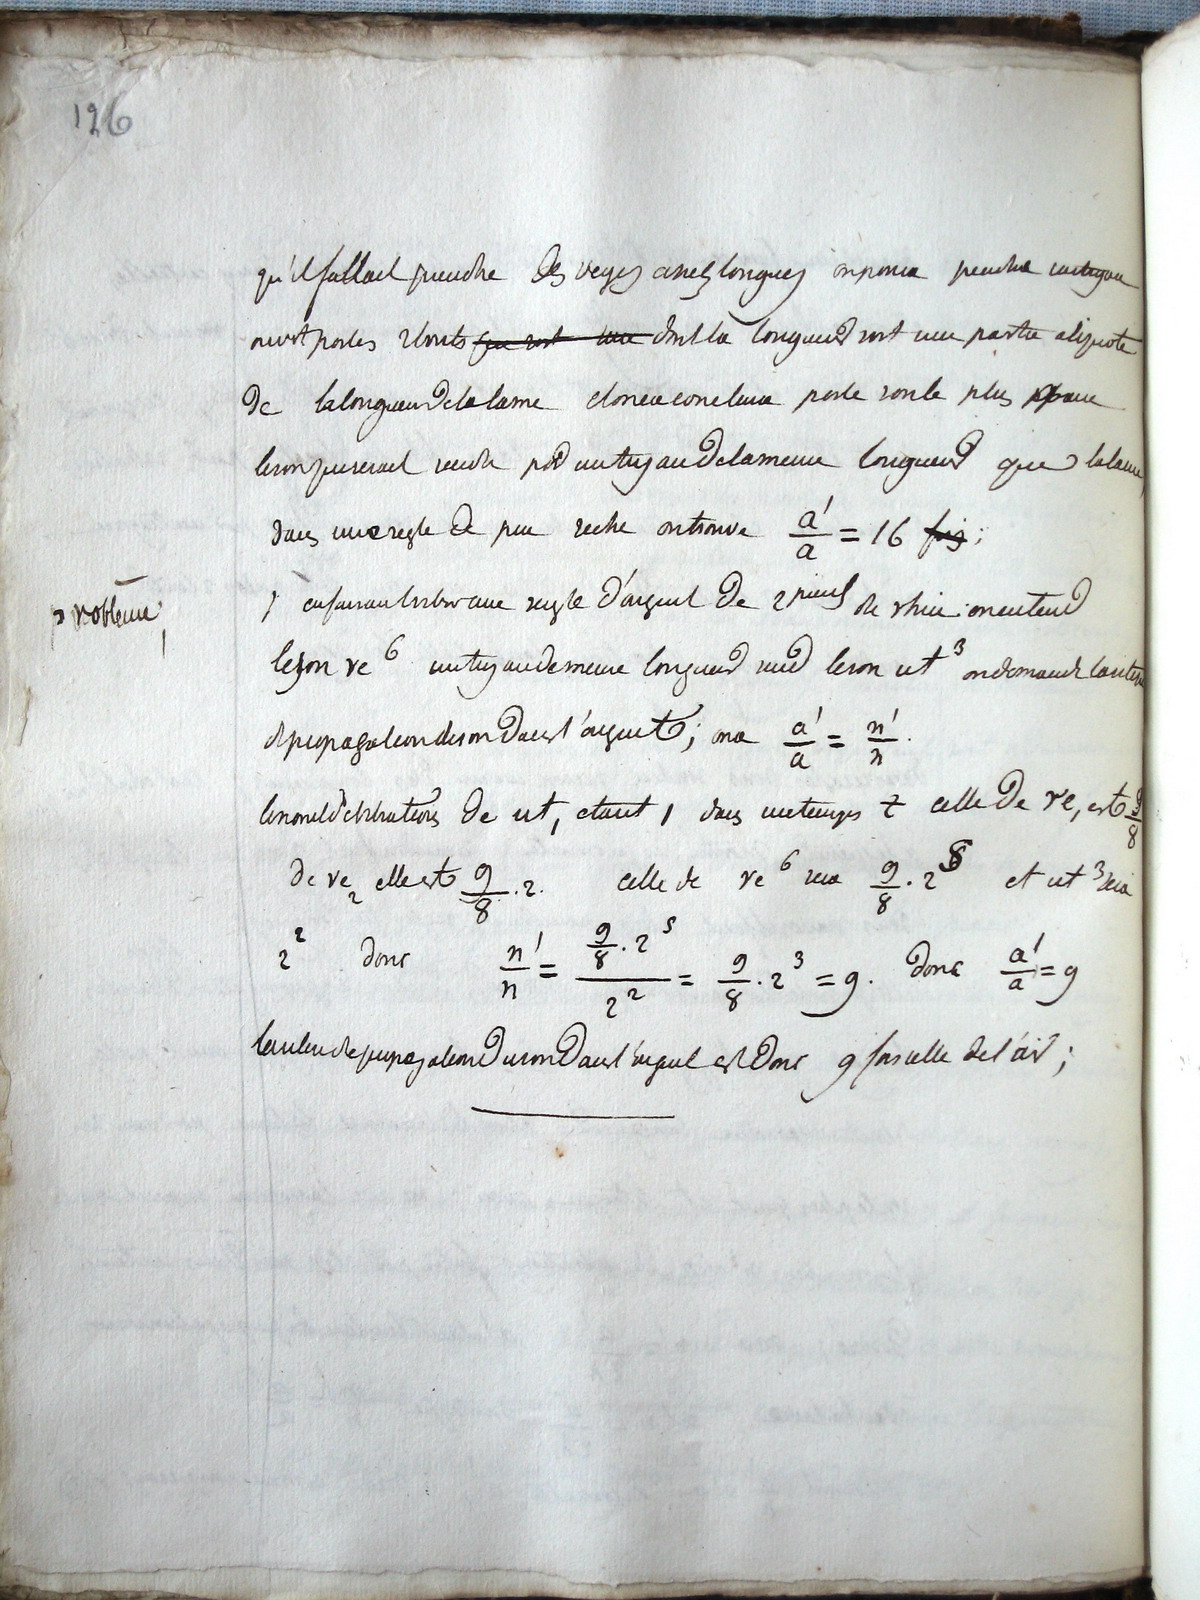 126
qu'il fallait prendre des verges assez longues on pourra prendre un tuyau
ouvert par les 2 bouts dont la longueur soit une partie aliquote
de la longueur de la lame et on en conclura par le son le plus grave
le son que serait rendu par un tuyau de la meme longueur que la lame,
dans une regle de pin seche on trouve a'/a = 16 fois;
probleme, en faisant vibrer une regle d'argent de 2 pieds du rhin on entend
le son re 6 un tuyau de meme longueur rend le son ut 3 on demande la vitesse
de propagation du son dans l'argent; on a a'/a = n'/n.
le nombre de vibrations de ut, etant 1 dans un temps t celle de re, est 9/8
de re 2 elle est 9/8 . 2. celle de re 6 sera 9/8 . 2 5 et ut 3 sera
2 2 donc n'/n = 9/8 . 2 5 / 2 2 = 9/8 . 2 3 = 9. donc a'/a = 9
la vitesse de propagation du son dans l'argent est donc 9 fois celle de l'air;